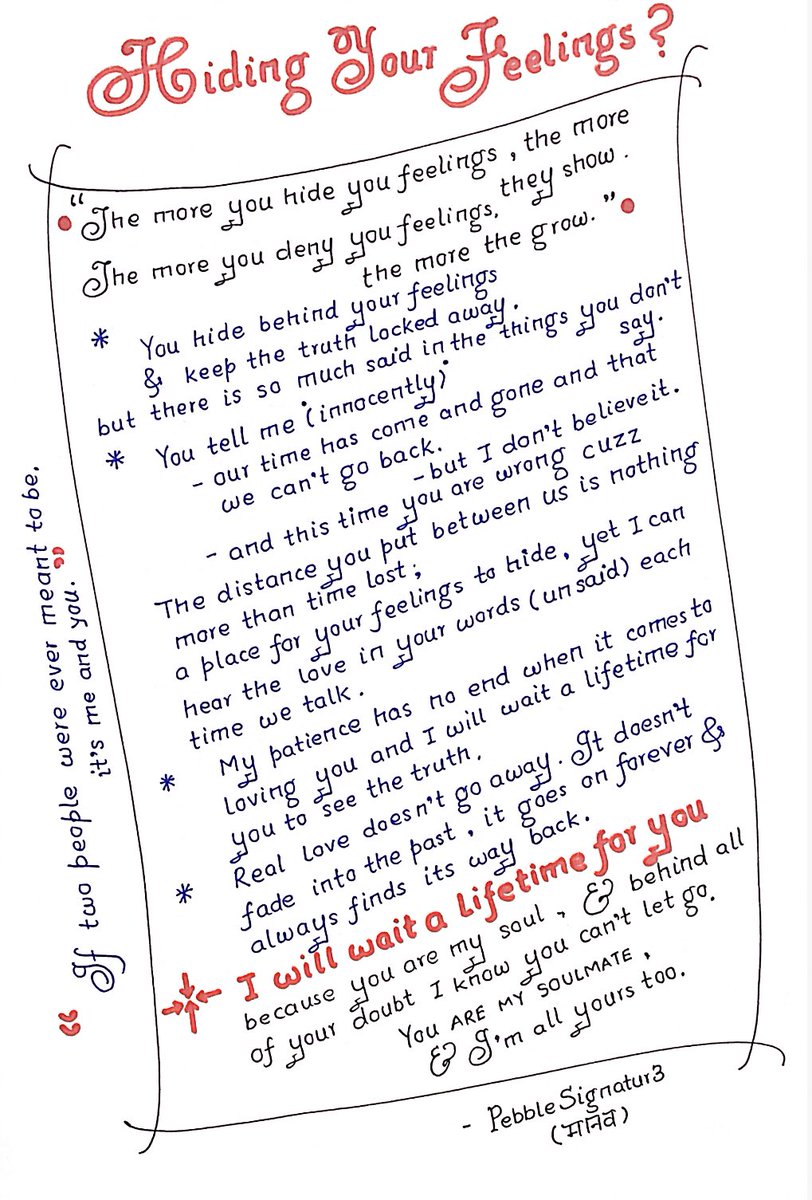 Hiding Your Feelings?
"The more you hide you feelings, the more
they show.
The more you deny you feelings,
the more the grow."
* You hide behind your feelings
& keep the truth locked away.
but there is so much said in the things you don't
say.
* You tell me (innocently)
- our time has come and gone and that
we can't go back.
- but I don't believe it.
- and this time you are wrong cuzz
The distance you put between us is nothing
more than time lost;
a place for your feelings to hide, yet I can
hear the love in your words (unsaid) each
time we talk.
* My patience has no end when it comes to
loving you and I will wait a lifetime for
you to see the truth.
* Real love doesn't go away. It doesn't
fade into the past, it goes on forever &
always finds its way back.
I will wait a lifetime for you
because you are my soul, & behind all
of your doubt I know you can't let go.
You are my soulmate,
& I'm all yours too.
- PebbleSignatur3
(मानव)
"If two people were ever meant to be,
it's me and you."